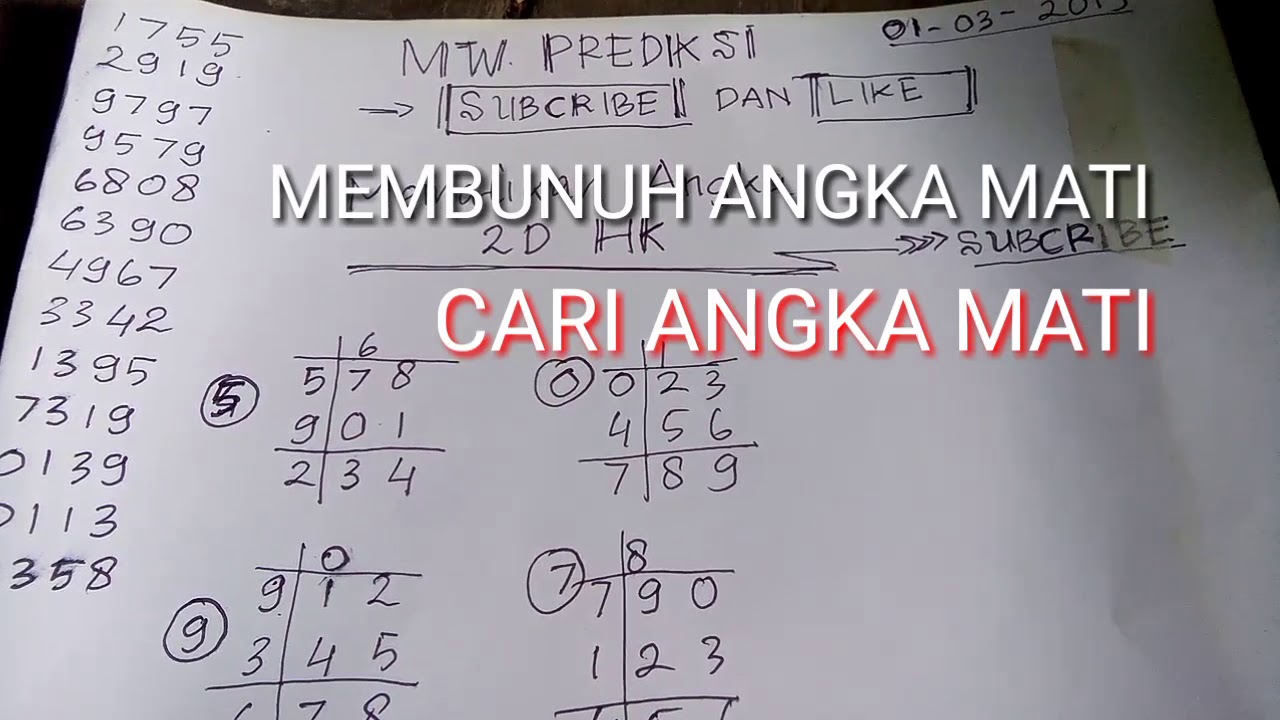 1755
2919
9797
9579
6808
6390
4967
3342
1395
7319
0139
0113
358
01-03-
MW. PREDIKSI
→ SUBCRIBE DAN LIKE
MEMBUNUH ANGKA MATI
Angka
2D HK
SUBCRIBE
CARI ANGKA MATI
6
5 5 7 8
9 0 1
2 3 4
1
0 0 2 3
4 5 6
7 8 9
0
9 1 2
9 3 4 5
7 8
8
7 7 9 0
1 2 3